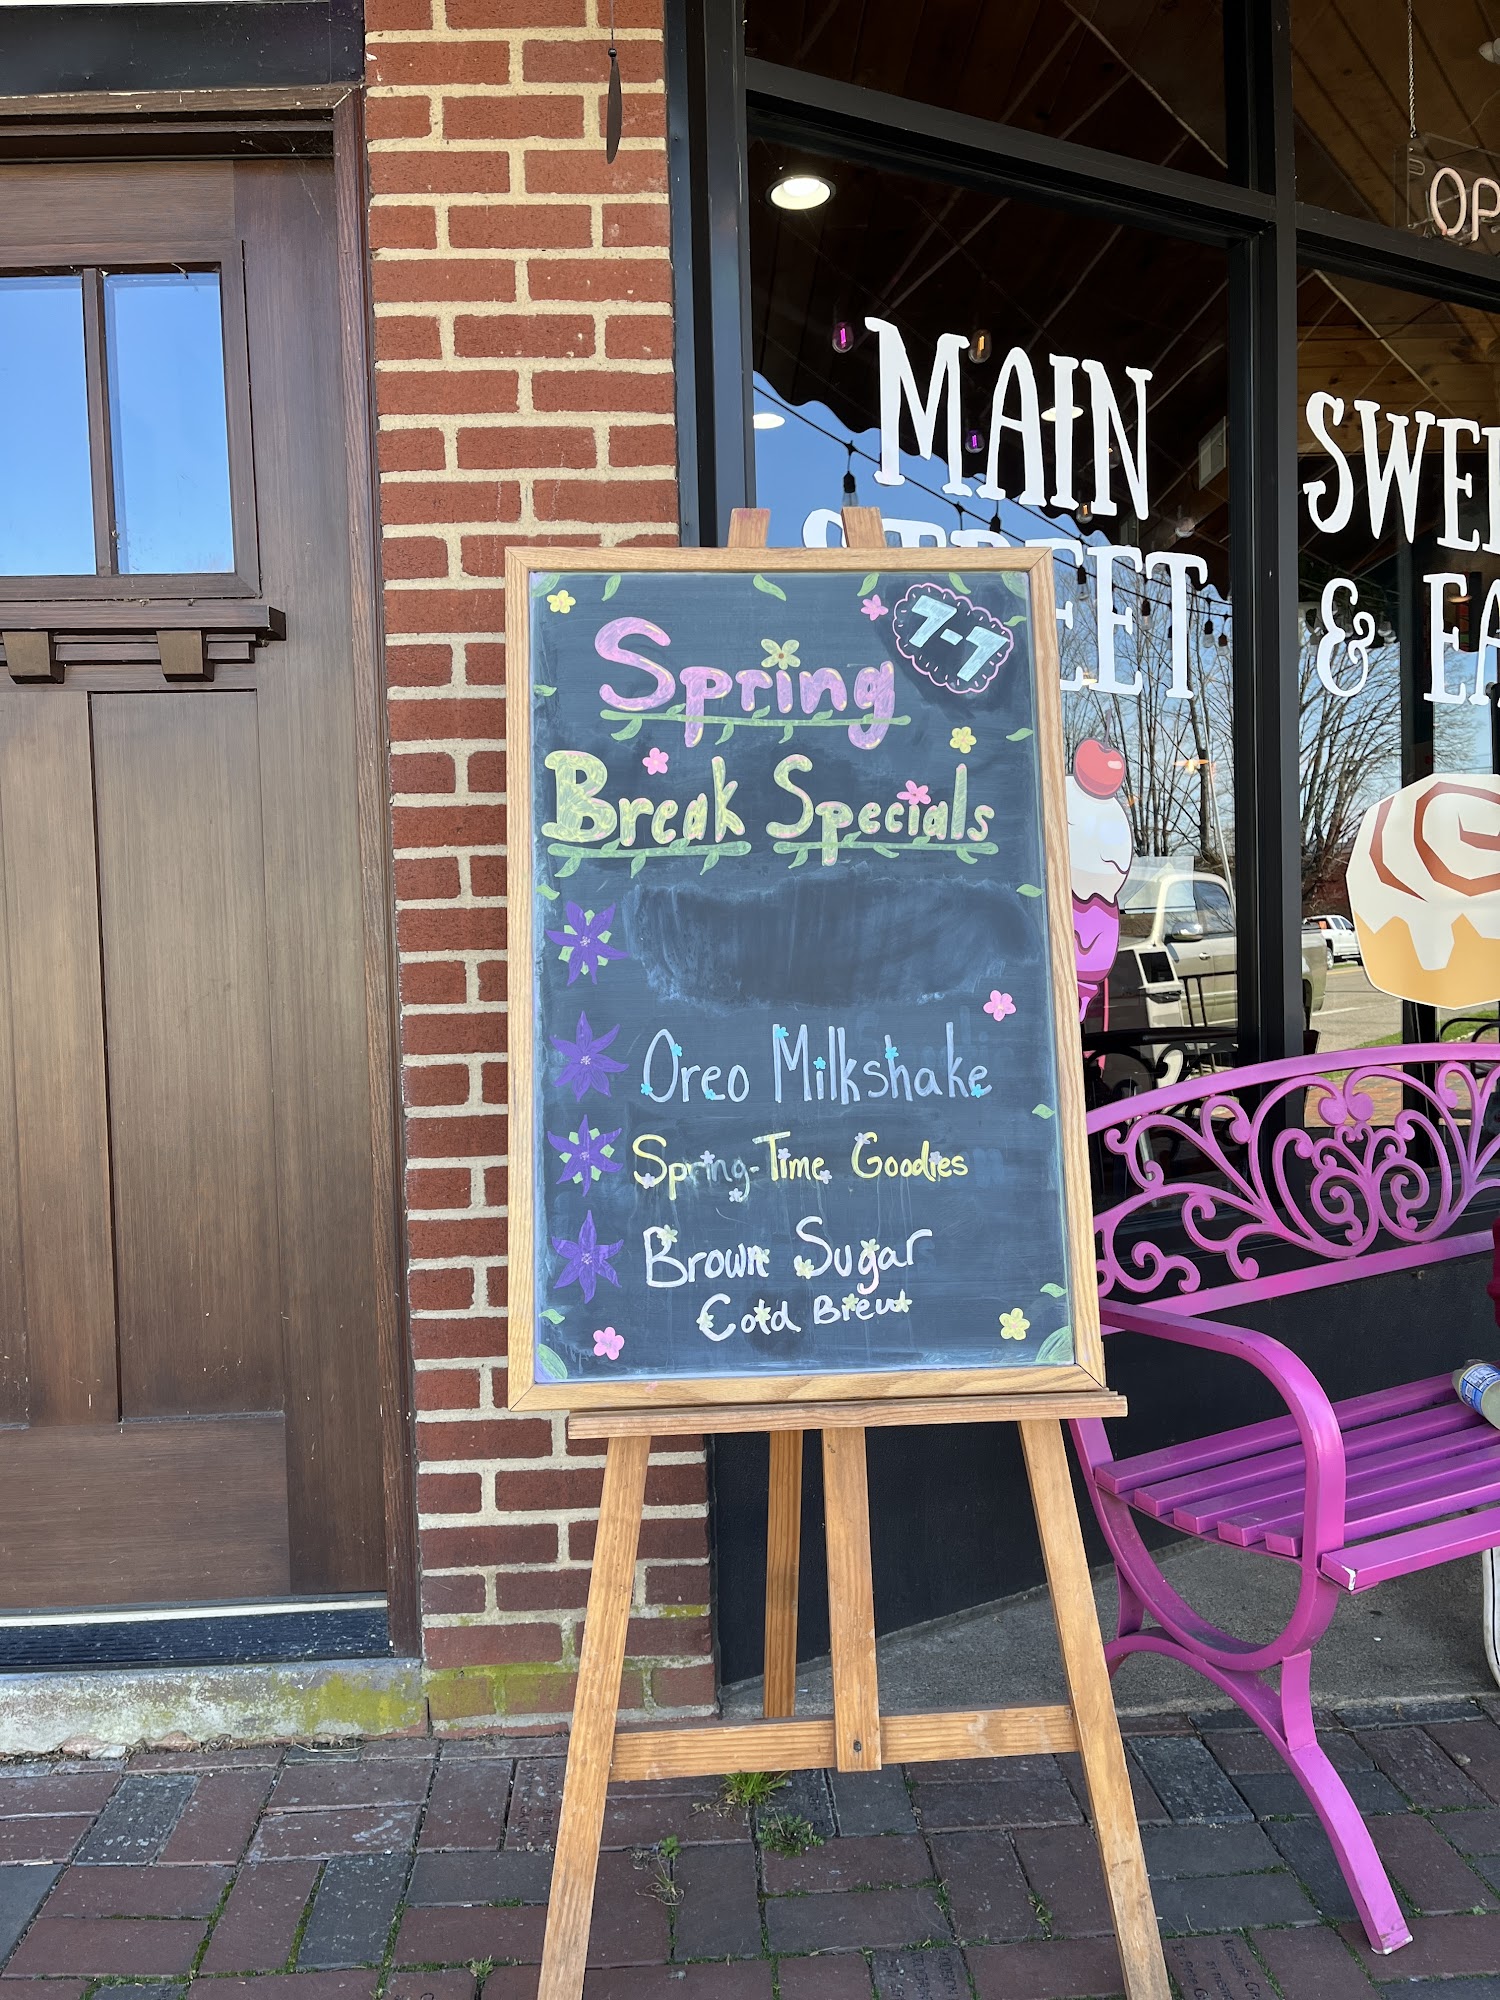 OP
MAIN
STREET
SWE
& EA
7-7
Spring
Break Specials
Oreo Milkshake
Spring-Time Goodies
Brown Sugar
Cold Brew